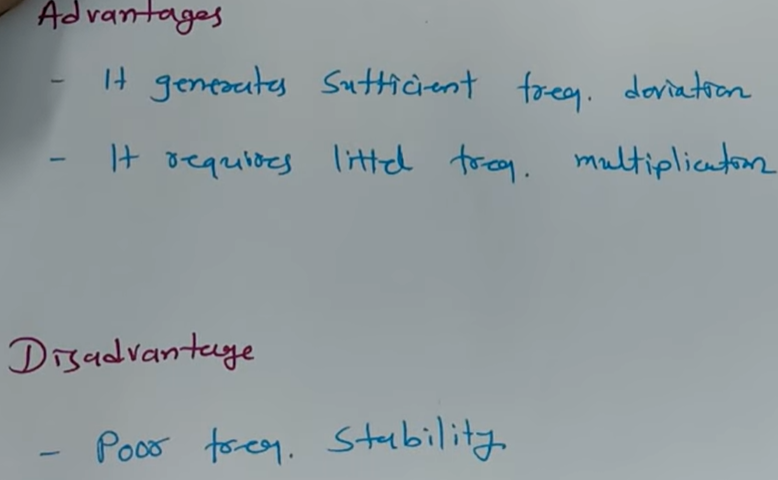 Advantages
- It generates sufficient freq. deviation
- It requires little freq. multiplication
Disadvantage
- Poor freq. stability